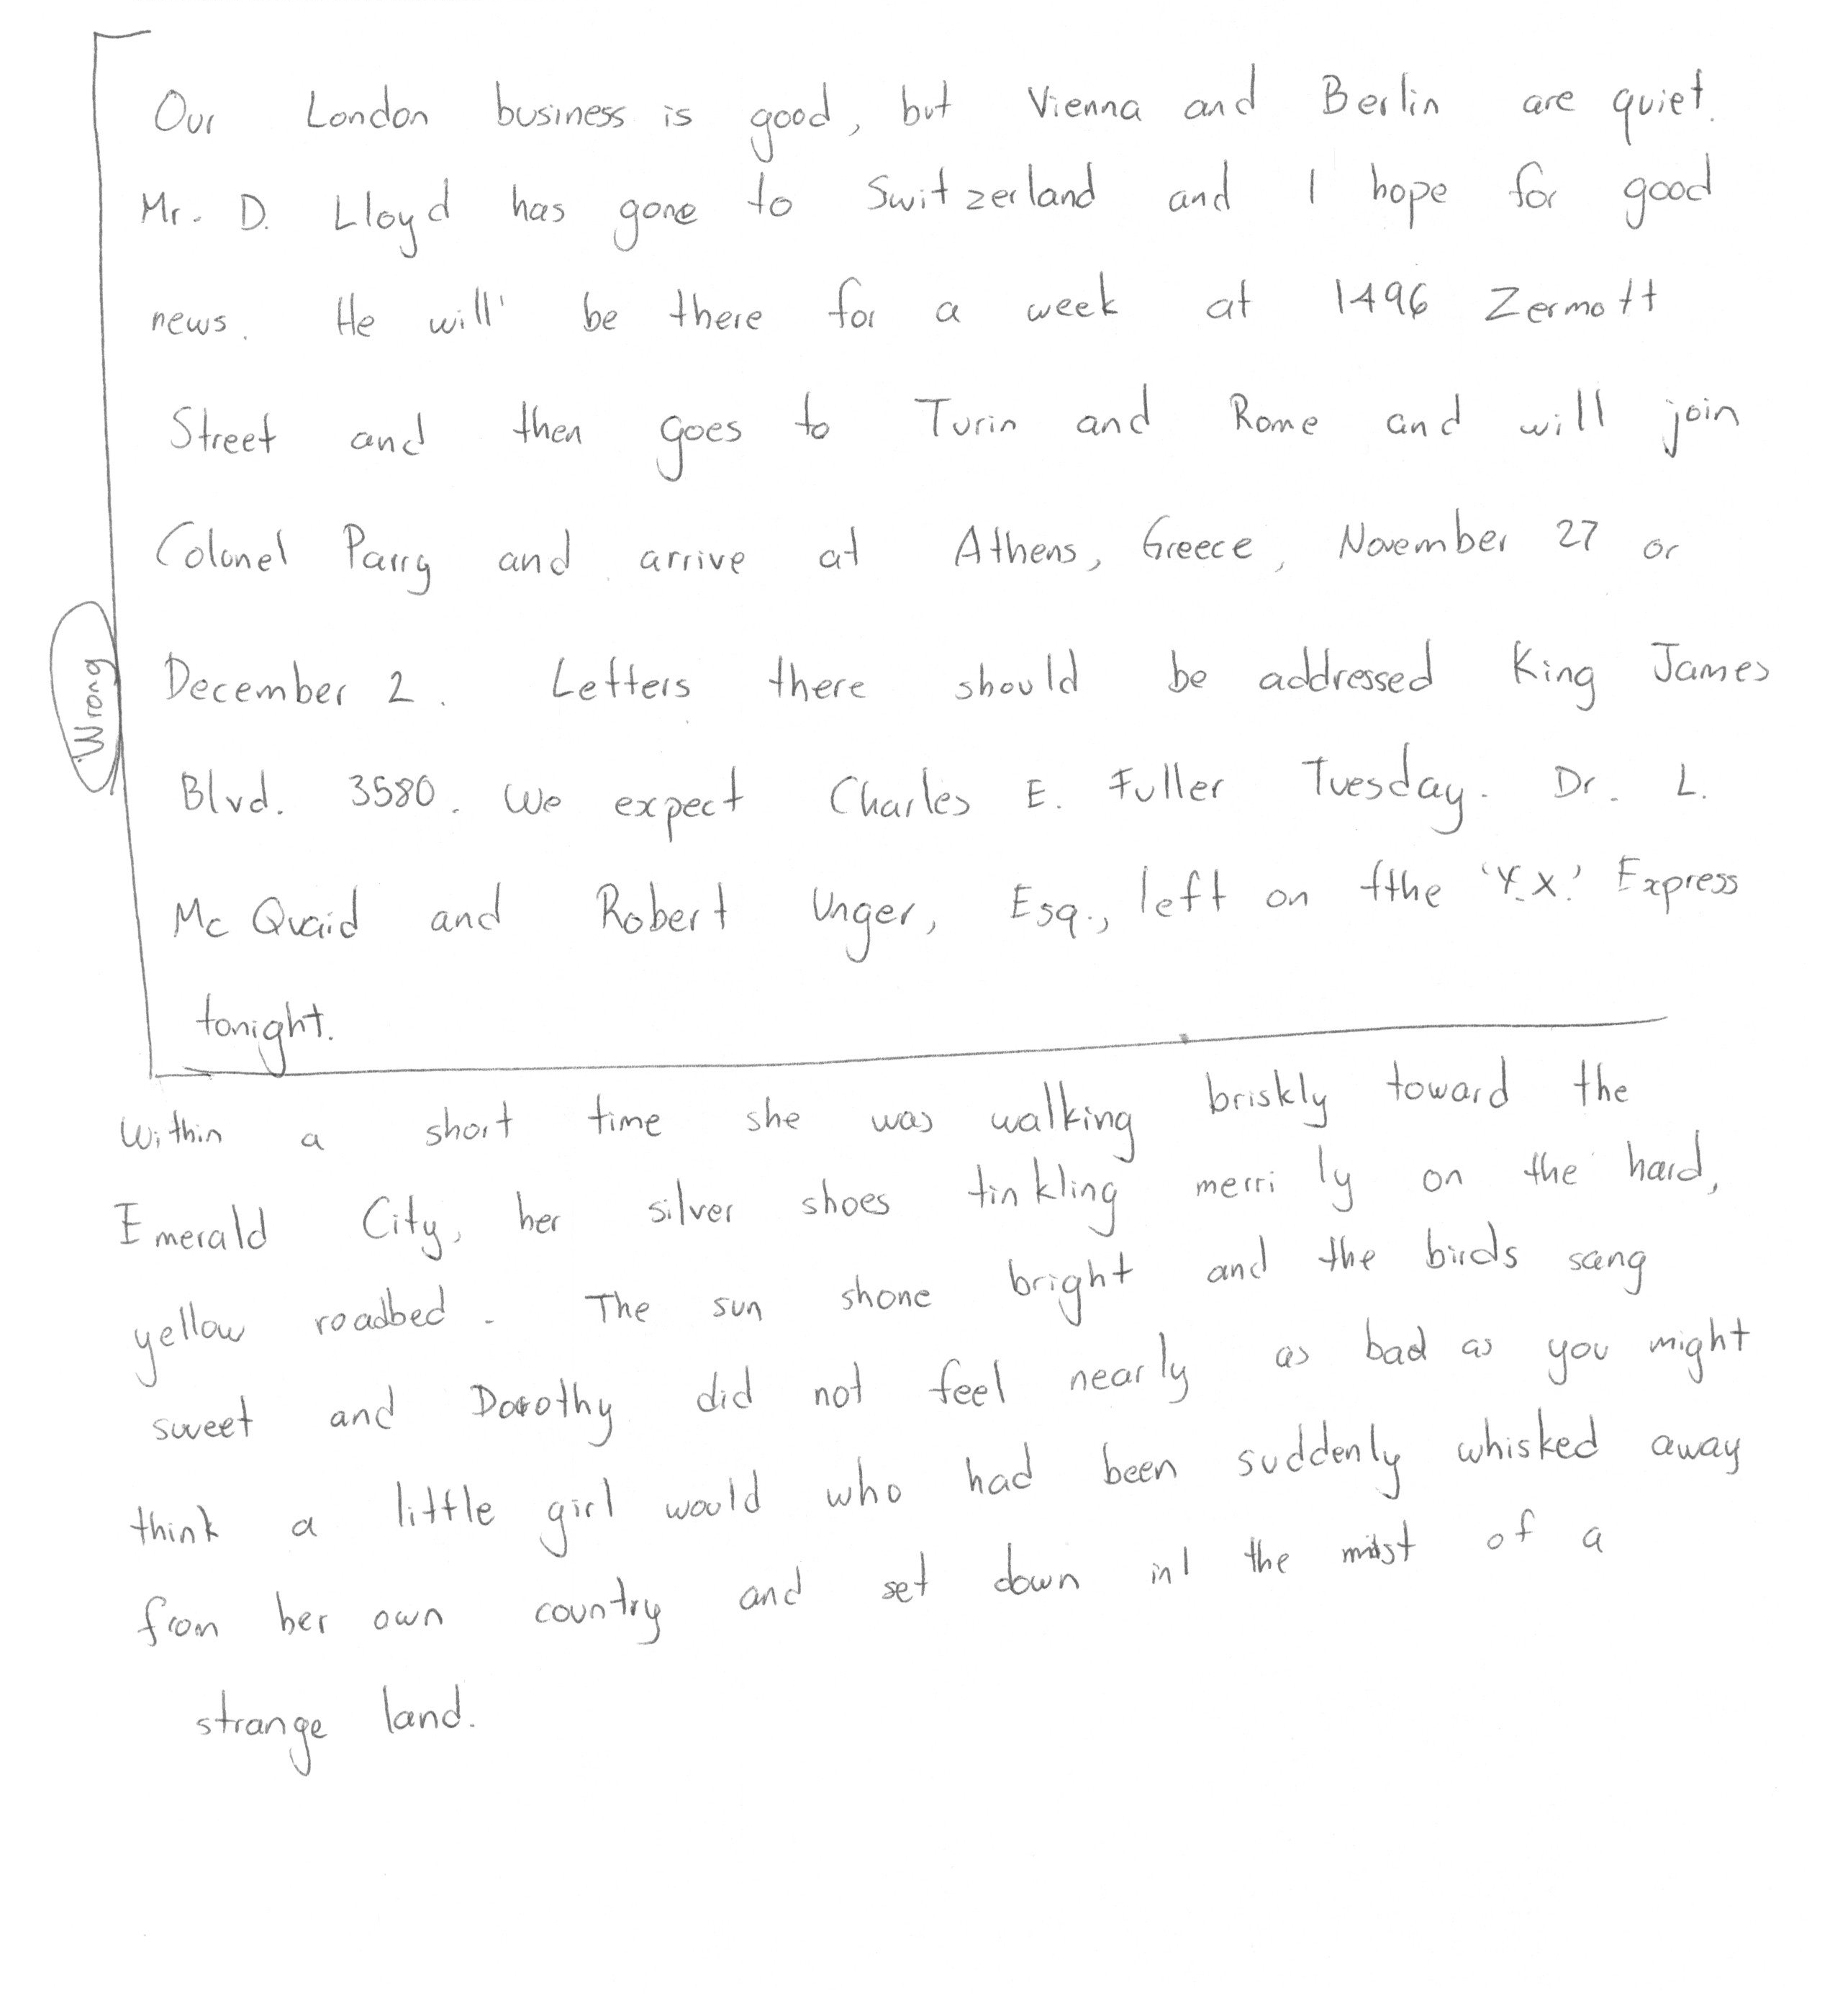 Our London business is good, but Vienna and Berlin are quiet.
Mr. D. Lloyd has gone to Switzerland and I hope for good
news. He will be there for a week at 1496 Zermott
Street and then goes to Turin and Rome and will join
Colonel Parry and arrive at Athens, Greece, November 27 or
December 2. Letters there should be addressed King James
Wrong
Blvd. 3580. We expect Charles E. Fuller Tuesday. Dr. L.
Mc Quaid and Robert Unger, Esq., left on the 'Y.X.' Express
tonight.
Within a short time she was walking briskly toward the
Emerald City, her silver shoes tinkling merrily on the hard,
yellow roadbed. The sun shone bright and the birds sang
sweet and Dorothy did not feel nearly as bad as you might
think a little girl would who had been suddenly whisked away
from her own country and set down in the midst of a
strange land.